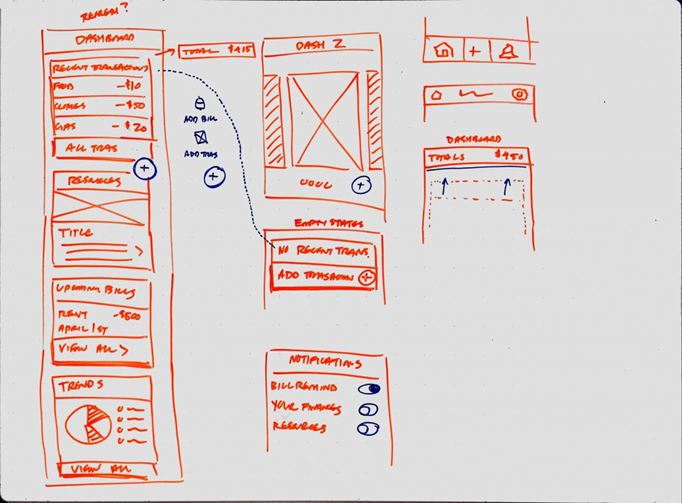 DASHBOARD
RECENT TRANSACTIONS
FOOD -$10
CLOTHES -$50
GAS -$20
ALL TRAS
+
RESOURCES
TITLE
UPCOMING BILLS
RENT -$500
APRIL 1ST
VIEW ALL >
TRENDS
VIEW ALL
TOTAL $415
ADD BILL
ADD TRAS
+
DASH 2
+
EMPTY STATES
NO RECENT TRANS.
ADD TRASACTION +
NOTIFICATIONS
BILL REMIND
YOUR FINANCES
RESOURCES
+
DASHBOARD
TOTALS $450